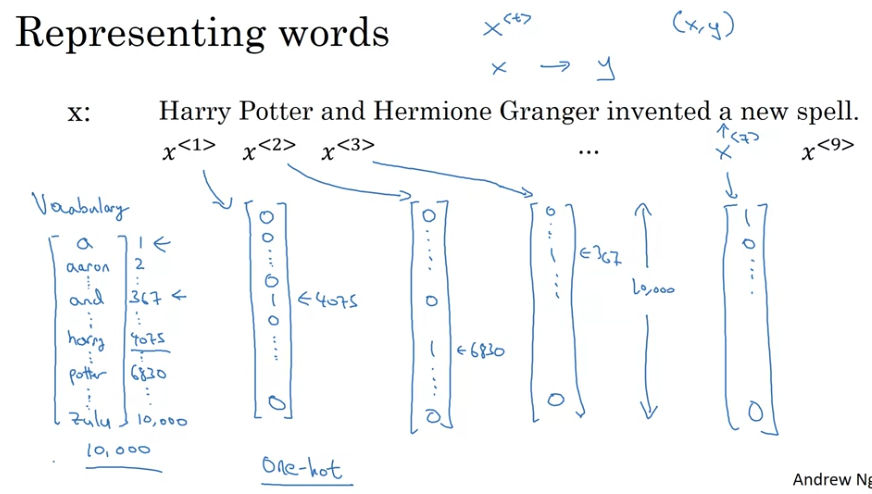 Representing words
x<t> (x,y)
x → y
x: Harry Potter and Hermione Granger invented a new spell.
x<1> x<2> x<3> ... x<7> x<9>
Vocabulary
a 1 ←
aaron 2
and 367 ←
harry 4075
potter 6830
zulu 10,000
10,000
0
0
0
1 ←4075
0
0
0
0
1 ←6830
0
0
1 ←367
0
10,000
1
0
0
One-hot
Andrew Ng